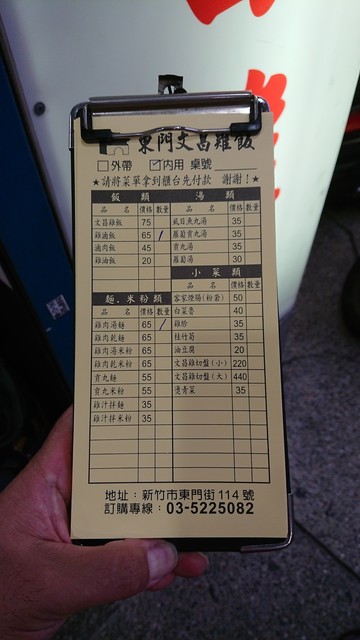 東門文昌雞飯
□外帶 ☑內用 桌號
★請將菜單拿到櫃台先付款 謝謝！★
飯 類
品 名 價格 數量
文昌雞飯 75
雞滷飯 65 /
滷肉飯 45
雞油飯 20
麵.米粉類
品 名 價格 數量
雞肉湯麵 65 /
雞肉乾麵 65
雞肉湯米粉 65
雞肉乾米粉 65
貢丸麵 55
貢丸米粉 55
雞汁拌麵 35
雞汁拌米粉 35
湯 類
品 名 價格 數量
虱目魚丸湯 35
蘿蔔貢丸湯 35
貢丸湯 35
蘿蔔湯 30
小 菜 類
品 名 價格 數量
客家煙腸(粉薑) 50
白菜香 40
雞胗 35
桂竹筍 35
油豆腐 20
文昌雞切盤(小) 220
文昌雞切盤(大) 440
燙青菜 35
地址：新竹市東門街114號
訂購專線：03-5225082